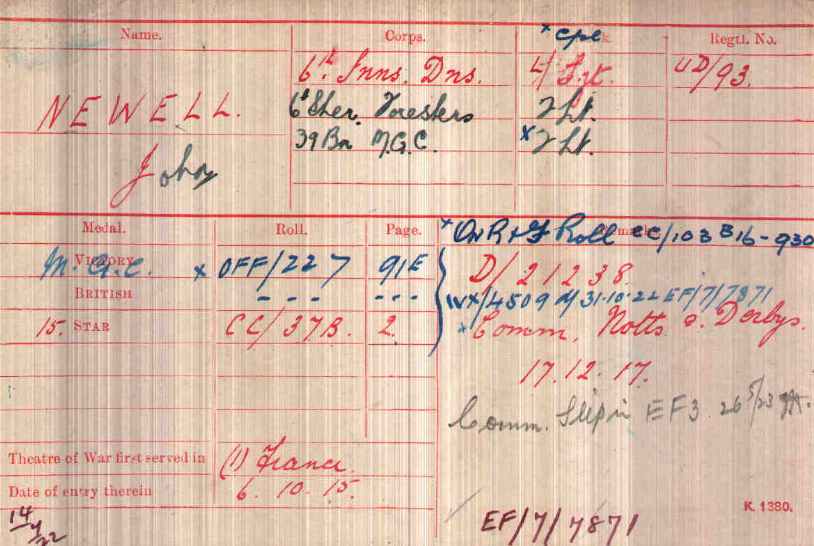 Name. Corps. Rank. Regtl. No.
x Cpl
6th Inns. Dns. L/Srt. UD/93.
NEWELL. 6th Sher. Foresters 2 Lt.
39 Bn M.G.C. x 2 Lt.
John
Medal. Roll. Page. Remarks
x On R & F Roll CC/103 B16-930
VICTORY M.G.C. x OFF/227 91E D/21238.
BRITISH - - - - - - IVX/4509 31-10-22 EF/7/7871
15. STAR CC/37B. 2. x Comm. Notts & Derbys.
17.12.17.
Comm. Slip in EF3 26/5/23
Theatre of War first served in (1) France.
Date of entry therein 6. 10. 15.
K. 1380.
EF/7/7871